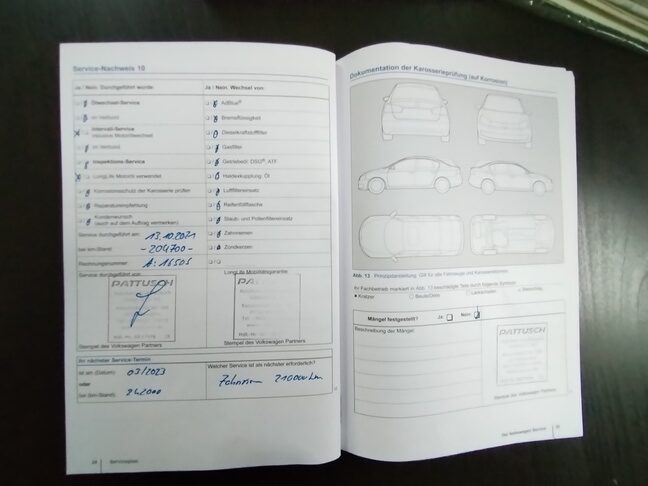 Service-Nachweis 10
Ja / Nein: Durchgeführt wurde:
Ja / Nein: Wechsel von:
Ölwechsel-Service
im Verbund
Intervall-Service
inklusive Motorölwechsel
im Verbund
Inspektions-Service
LongLife Motoröl verwendet
Korrosionsschutz der Karosserie prüfen
Reparaturempfehlung
Kundenwunsch
(auch auf dem Auftrag vermerken)
AdBlue®
Bremsflüssigkeit
Dieselkraftstofffilter
Gasfilter
Getriebeöl: DSG®, ATF
Haldexkupplung: Öl
Luftfiltereinsatz
Reifenfüllflasche
Staub- und Pollenfiltereinsatz
Zahnriemen
Zündkerzen
Service durchgeführt am: 13.10.2021
bei km-Stand: -209700-
Rechnungsnummer: A: 16505
Service durchgeführt von:
LongLife Mobilitätsgarantie:
PATTUSCH
PATTUSCH
Stempel des Volkswagen Partners
Stempel des Volkswagen Partners
Ihr nächster Service-Termin
ist am (Datum): 03/2023
oder
bei (km-Stand):
Welcher Service ist als nächster erforderlich?
210000 km
28 Serviceplan
Dokumentation der Karosserieprüfung (auf Korrosion)
Abb. 13 Prinzipdarstellung: Gilt für alle Fahrzeuge und Karosserieformen
Ihr Fachbetrieb markiert in Abb. 13 beschädigte Teile durch folgende Symbole:
Kratzer
Beule/Delle
Lackschaden
Steinschlag
Mängel festgestellt? Ja: Nein:
Beschreibung der Mängel:
PATTUSCH
Stempel des Volkswagen Partners
Der Volkswagen Service